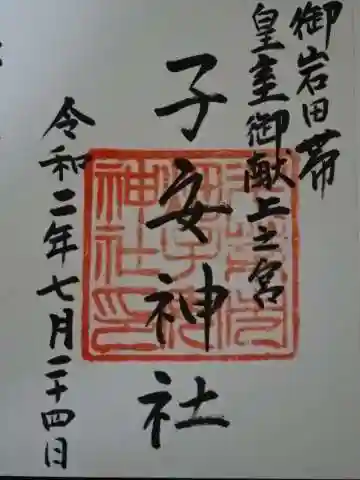 御岩田帯
皇室御献上之宮
子安神社
令和二年七月二十四日